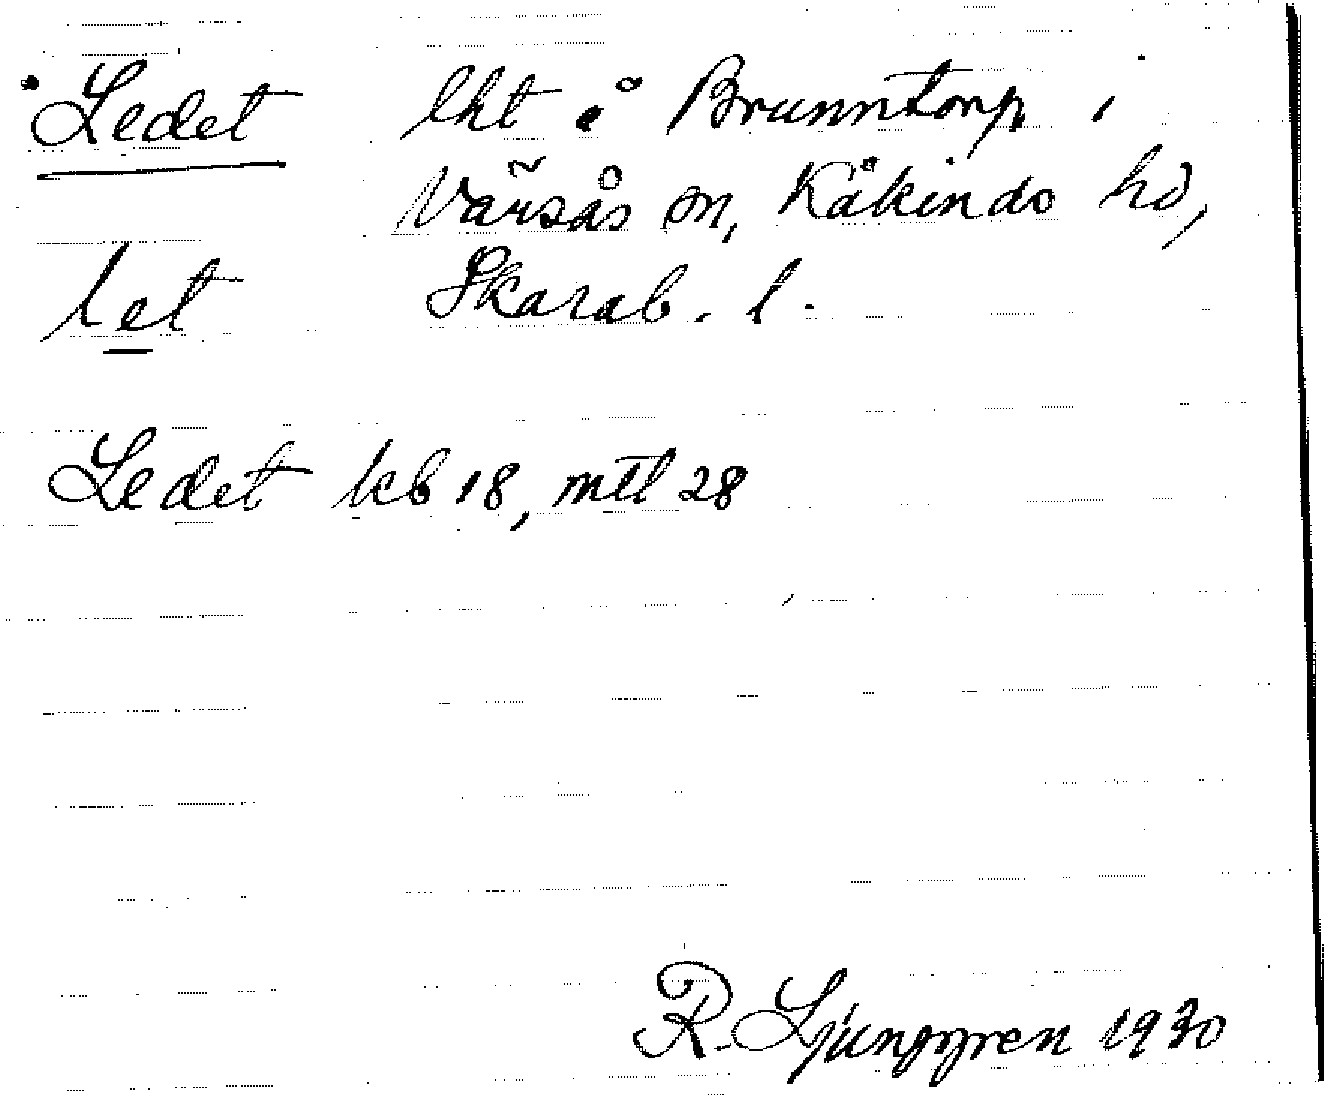 Ledet lht å Brunntorp i
Värsås sn, Kåkinds hd,
let Skarab. l.
Ledet kb 18, mtl 28
R. Ljunggren 1930